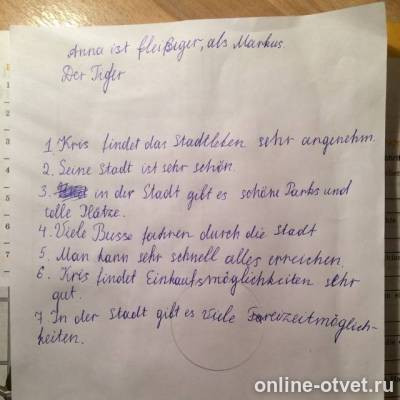 Anna ist fleißiger, als Markus.
Der Tiger
1. Kris findet das Stadtleben sehr angenehm.
2. Seine Stadt ist sehr schön.
3. in der Stadt gibt es schöne Parks und
tolle Plätze.
4. Viele Busse fahren durch die Stadt
5. Man kann sehr schnell alles erreichen.
6. Kris findet Einkaufsmöglichkeiten sehr
gut.
7. In der Stadt gibt es viele Freizeitmöglich-
keiten.
online-otvet.ru